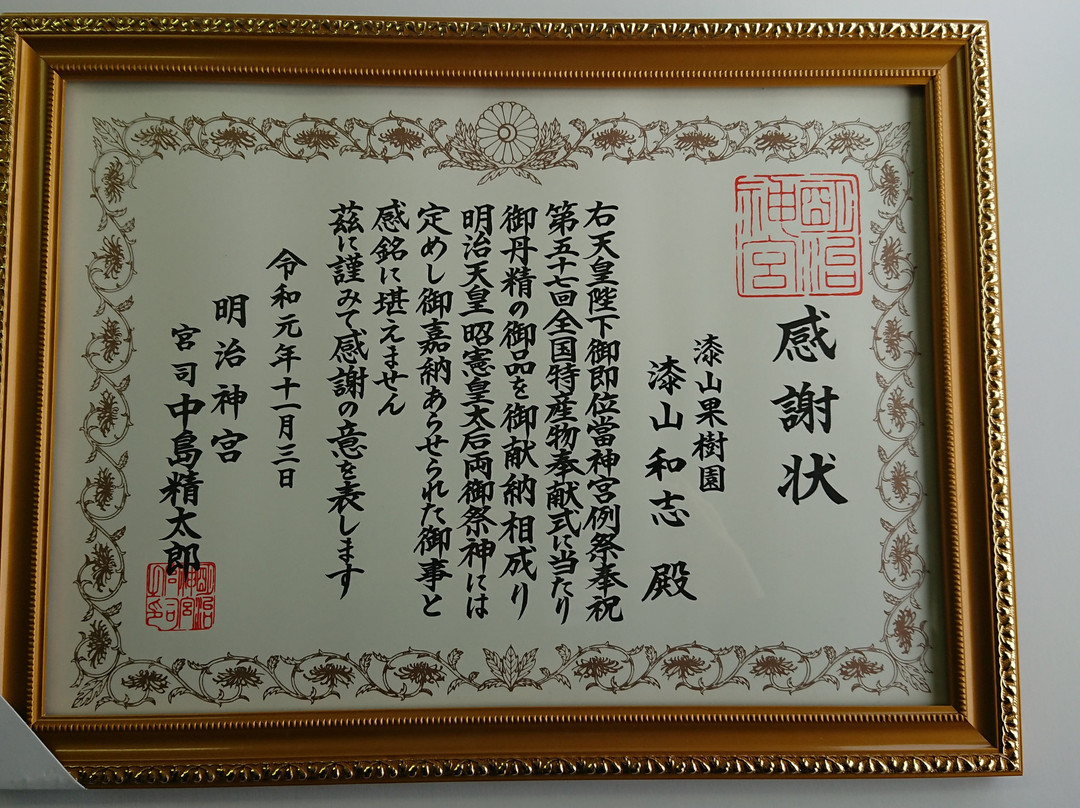 明治神宮
感謝状
漆山果樹園
漆山和志 殿
右天皇陛下御即位當神宮例祭奉祝
第五十七回全国特産物奉献式に当たり
御丹精の御品を御献納相成り
明治天皇 昭憲皇太后両御祭神には
定めし御嘉納あらせられた御事と
感銘に堪えません
茲に謹みて感謝の意を表します
令和元年十一月三日
明治神宮
宮司 中島精太郎
明治神宮宮司之印